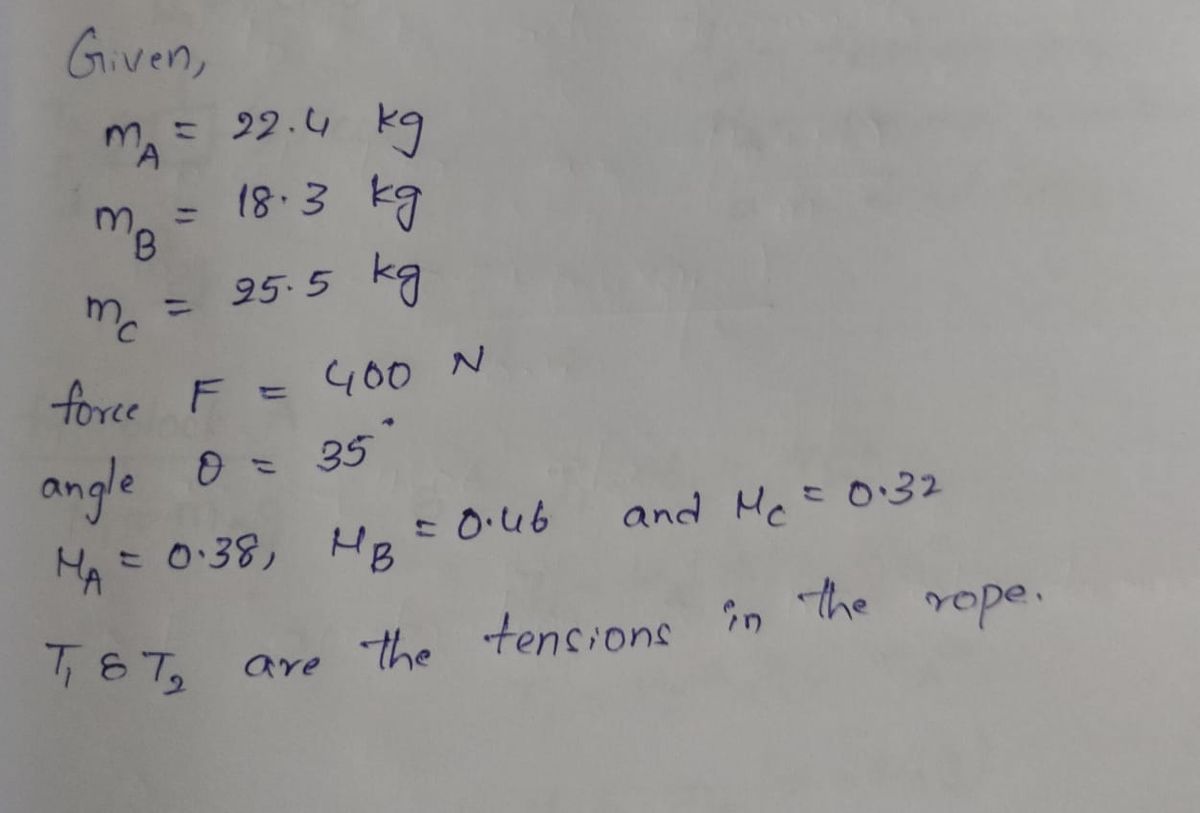 Given,
m_A = 22.4 kg
m_B = 18.3 kg
m_C = 25.5 kg
force F = 400 N
angle θ = 35°
μ_A = 0.38, μ_B = 0.46 and μ_C = 0.32
T_1 & T_2 are the tensions in the rope.